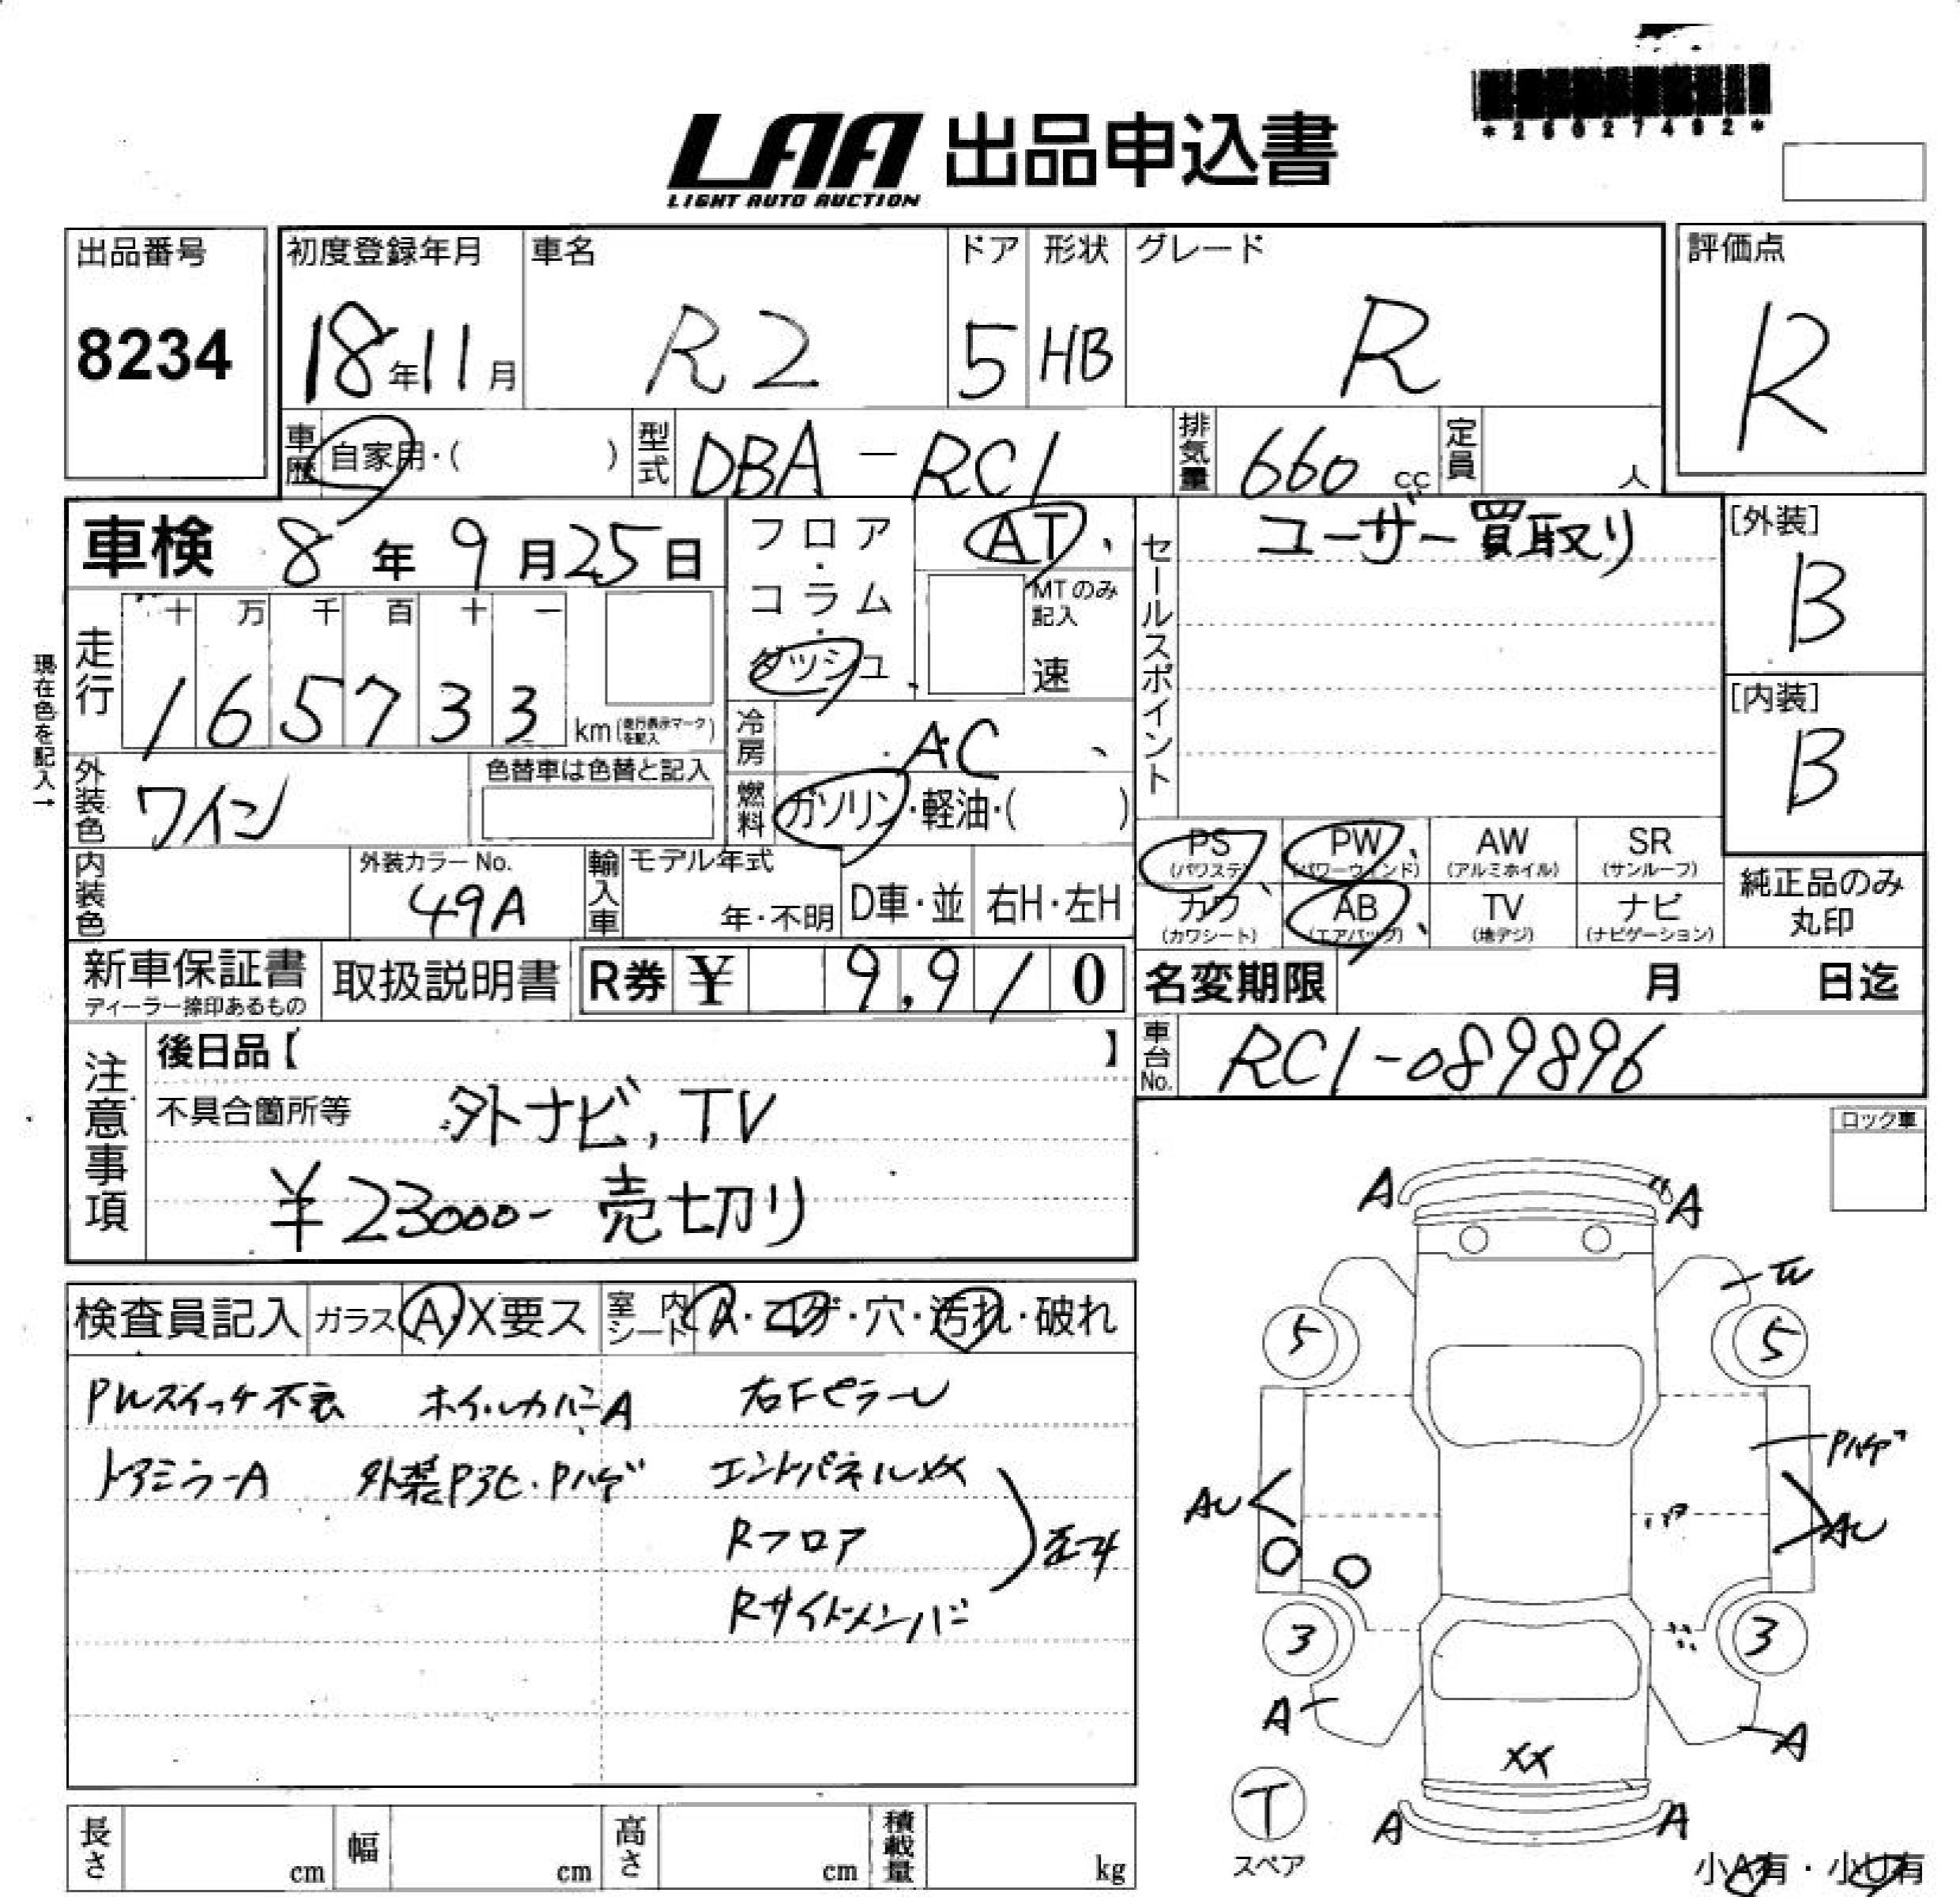 *25027492*
LAA 出品申込書
LIGHT AUTO AUCTION
出品番号
8234
初度登録年月
18年11月
車名
R2
ドア
5
形状
HB
グレード
R
評価点
R
車歴 自家用・( )
型式 DBA-RC1
排気量 660 cc
定員 人
車検 8年9月25日
フロア・コラム・ダッシュ
AT、
MTのみ記入
速
セールスポイント
ユーザー買取り
[外装]
B
[内装]
B
現在色を記入→
走行
十 万 千 百 十 一
1 6 5 7 3 3 km (走行表示マークを記入)
冷房 AC、
外装色 ワイン
色替車は色替と記入
燃料 ガソリン・軽油・( )
PS (パワステ)
PW (パワーウィンド)
AW (アルミホイル)
SR (サンルーフ)
カワ (カワシート)
AB (エアバッグ)
TV (地デジ)
ナビ (ナビゲーション)
純正品のみ丸印
内装色
外装カラーNo.
49A
輸入車
モデル年式
年・不明
D車・並
右H・左H
新車保証書
ディーラー捺印あるもの
取扱説明書
R券 ¥ 9,910
名変期限 月 日迄
車台No. RC1-089896
注意事項
後日品【 】
不具合箇所等
外ナビ, TV
¥23000- 売切り
ロック車
検査員記入
ガラス A・X要ス
室内シート A・コゲ・穴・汚れ・破れ
PWスイッチ不良 ホイルカバーA 右FピラーU
ドアミラーA 外装Pヨヒ・Pハゲ エンドパネルXX
Rフロア
Rサイドメンバー
A A
5 5
Pハゲ
AU AU
3 3
A A
XX
T
スペア
A A
小A有・小U有
長さ cm
幅 cm
高さ cm
積載量 kg